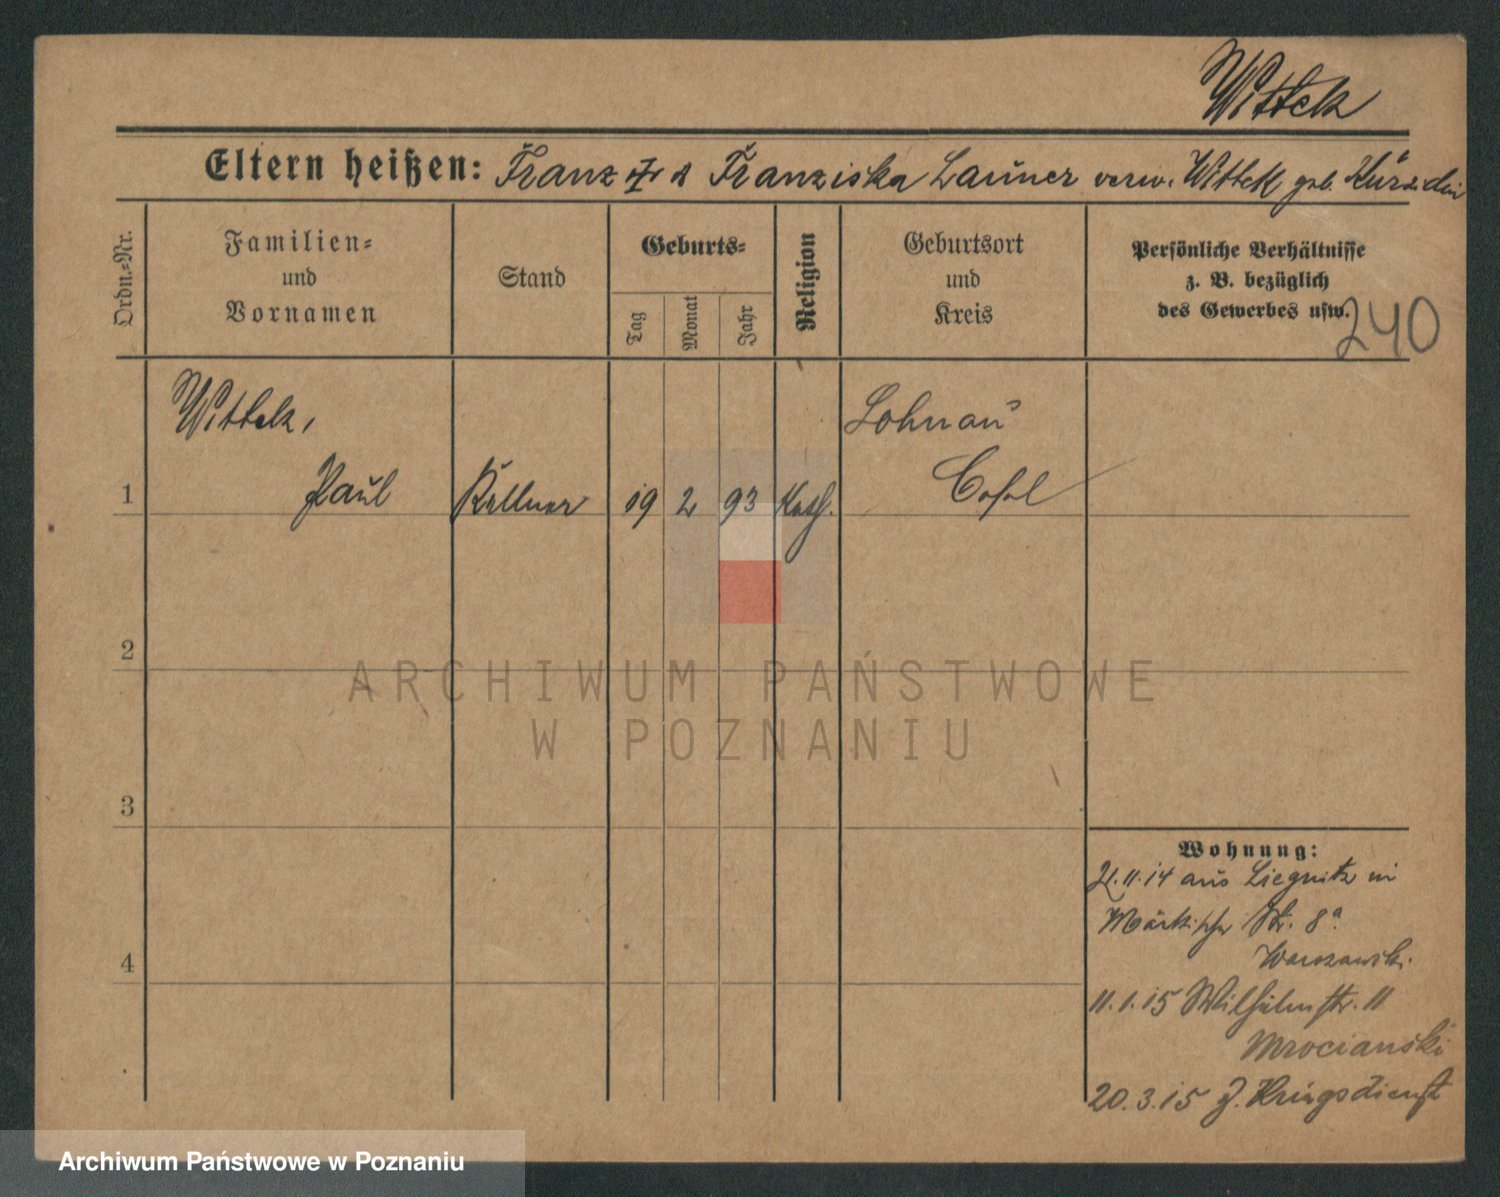 Wittek
Eltern heißen: Franz & Franziska Launer verw. Wittek geb.
Ordn.-Nr.
Familien-
und
Vornamen
Stand
Geburts-
Tag
Monat
Jahr
Religion
Geburtsort
und
Kreis
Persönliche Verhältnisse
z. B. bezüglich
des Gewerbes usw.
240
Wittek,
1 Paul Kellner 19 2 93 Kath.
Lohnau
Cosel
2
3
4
Wohnung:
21.11.14 aus Liegnitz in
Märkische Str. 8a.
Warszawski.
11.1.15 Wilhelmstr. 11
Mrocianski
20.3.15 z. Kriegsdienst
ARCHIWUM PAŃSTWOWE
W POZNANIU
Archiwum Państwowe w Poznaniu